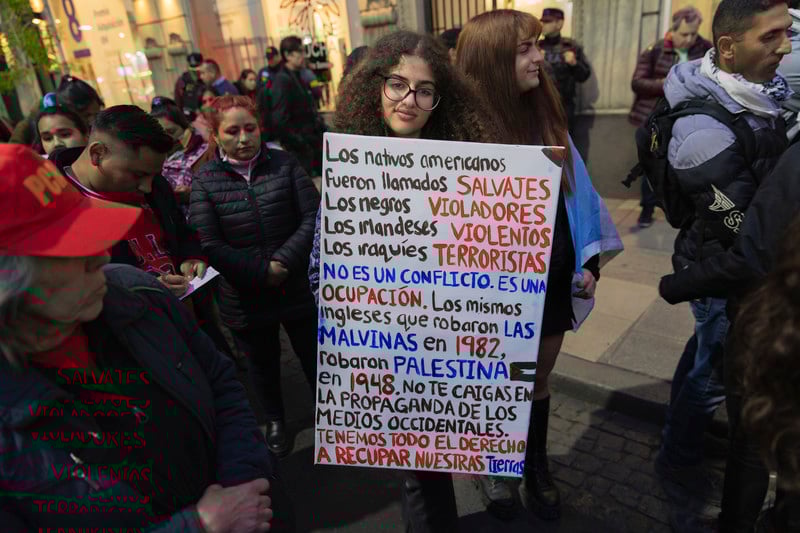 Los nativos americanos
fueron llamados SALVAJES
Los negros VIOLADORES
Los irlandeses VIOLENTOS
Los iraquíes TERRORISTAS
NO ES UN CONFLICTO. ES UNA
OCUPACIÓN. Los mismos
ingleses que robaron LAS
MALVINAS en 1982,
robaron PALESTINA
en 1948. NO TE CAIGAS EN
LA PROPAGANDA DE LOS
MEDIOS OCCIDENTALES.
TENEMOS TODO EL DERECHO
A RECUPAR NUESTRAS Tierras
SALVAJES
VIOLADORES
VIOLENTOS
TERRORISTAS